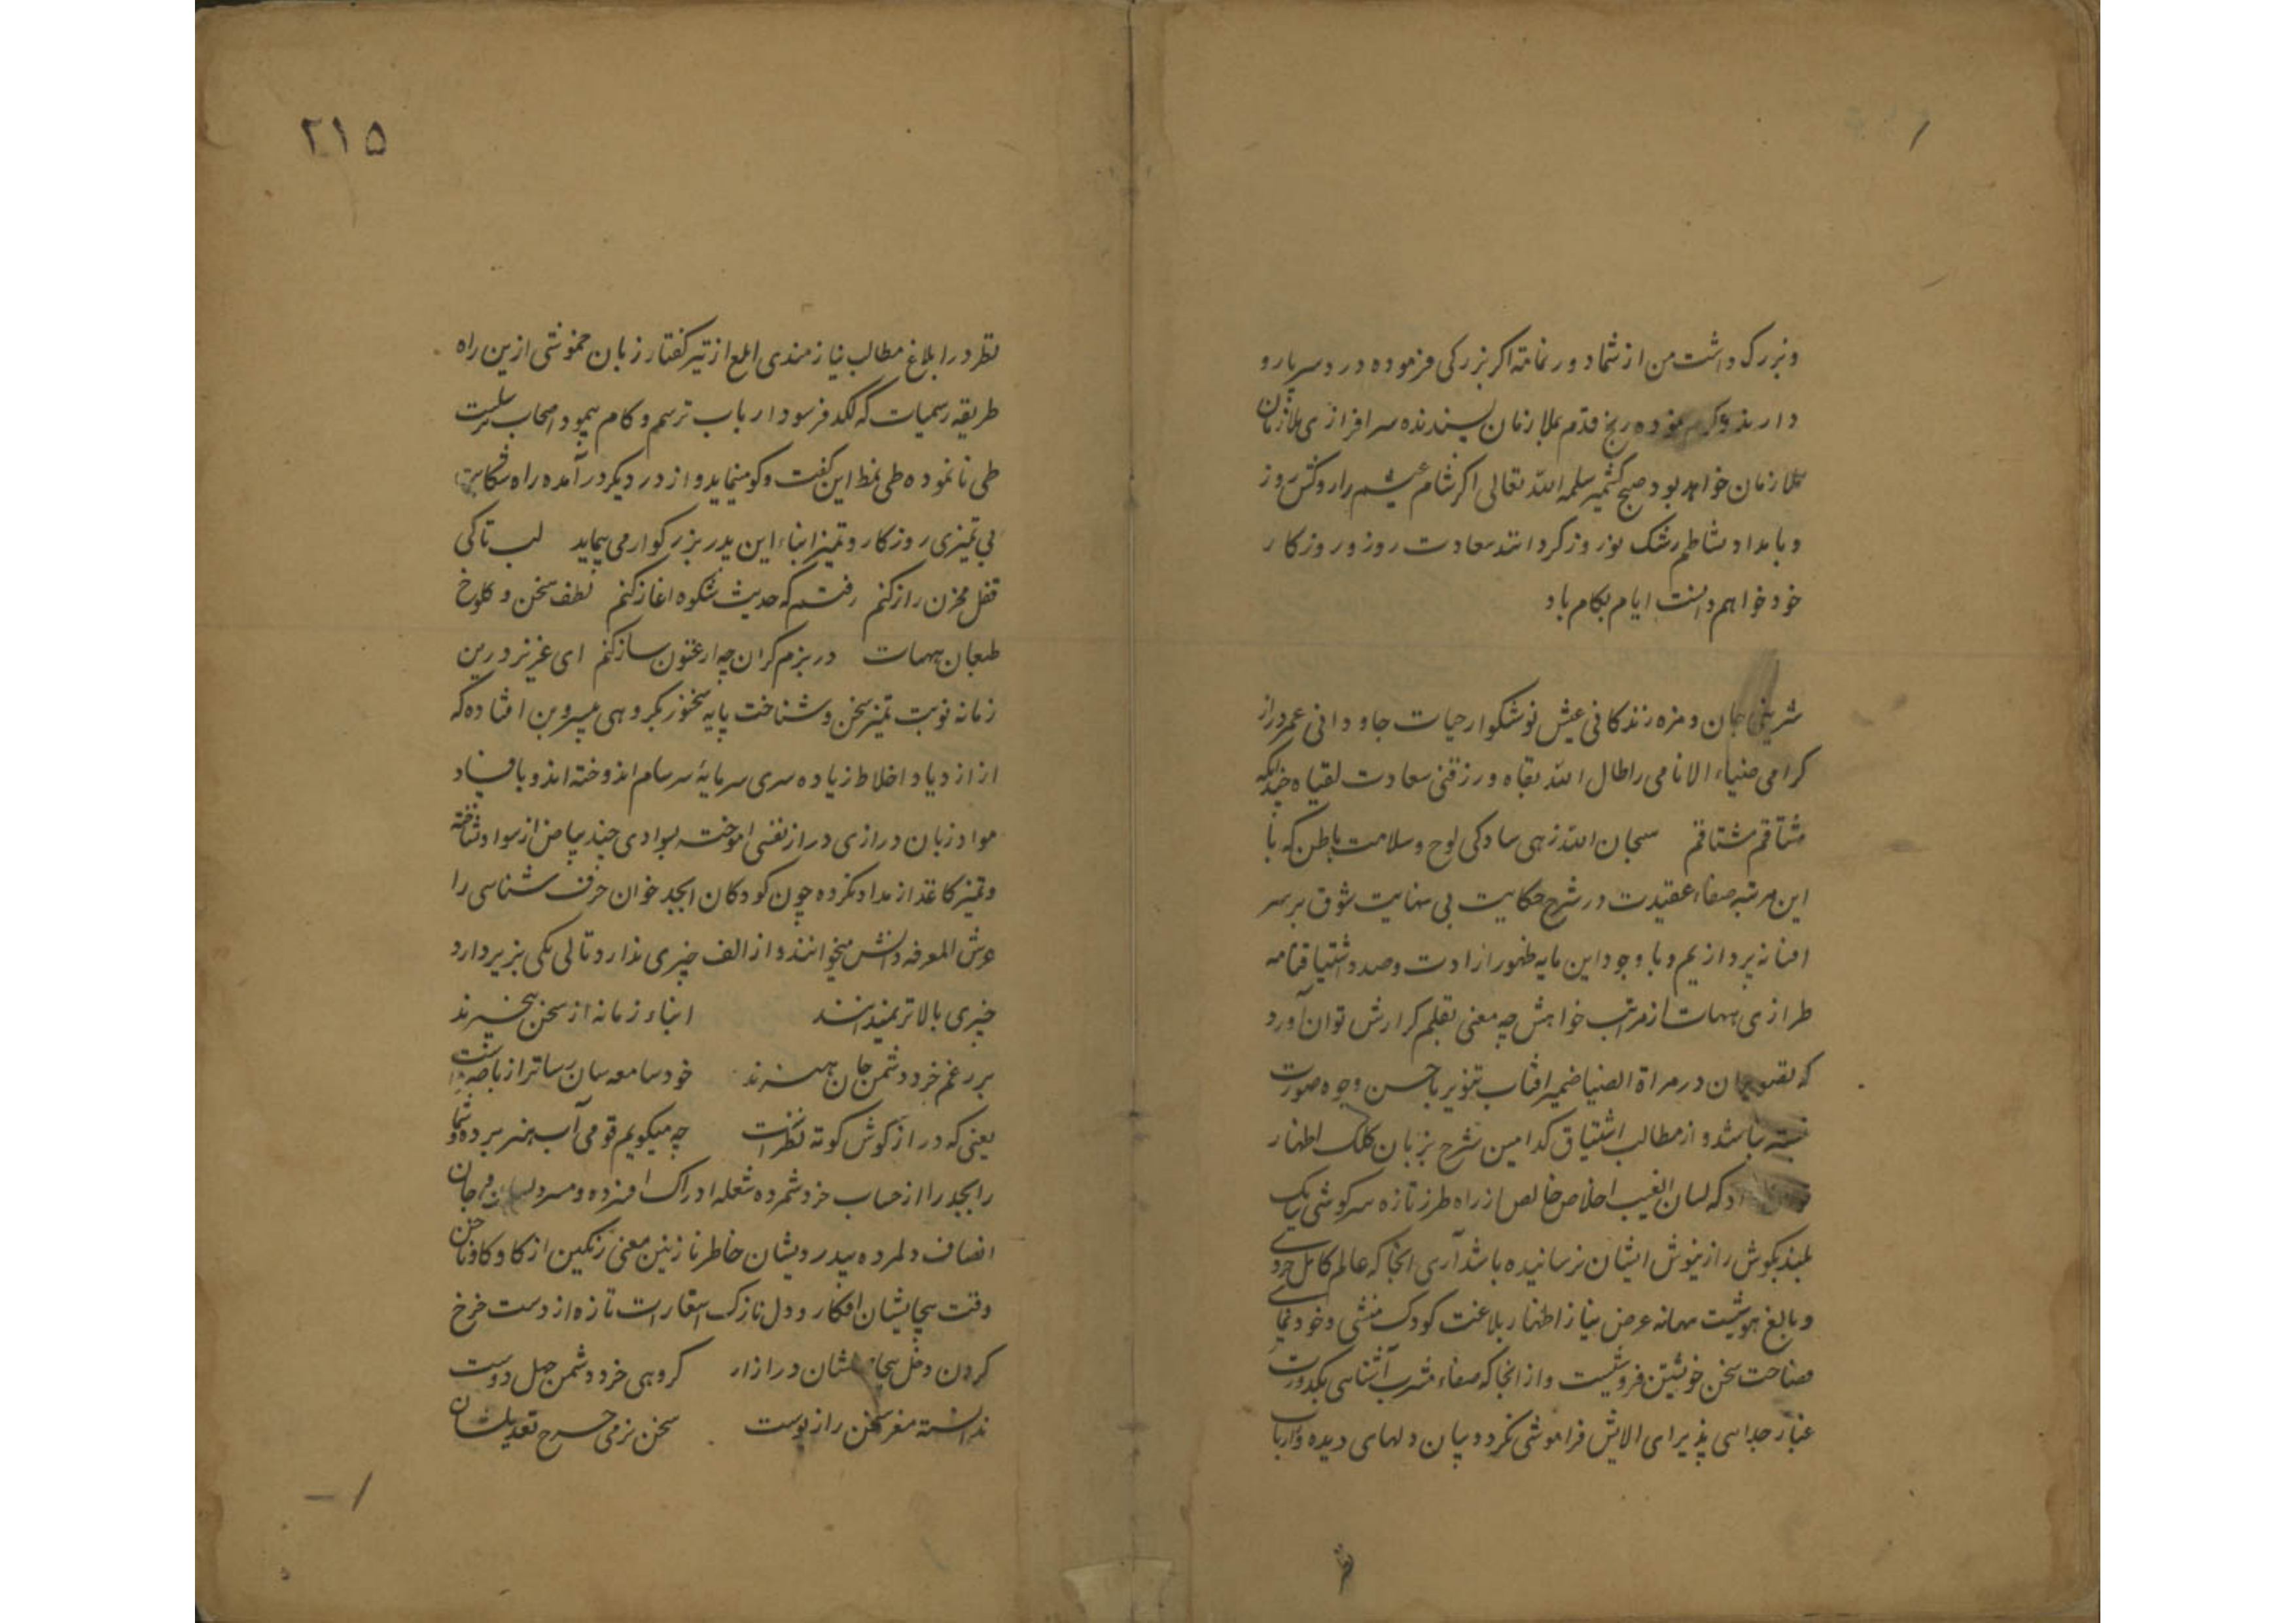 و بزرگ داشت من از شما دور نماند اکر بزرکی فرموده درد سر پا رو
دارند و کرم نموده رنج قدم بملازمان پسندنده سرافرازی ملازمان
ملازمان خواهد بود صبح کشمیر سلمه الله تعالی اکر شام عیشم را روکش روز
و بامداد نشاطم رشک نوروز کردانند سعادت روز و روزکار
خود خواهم دانست ایام بکام باد
شرینی جان و مزه زندکانی عیش نوشکوار حیات جاودانی عمر دراز
کرامی ضیاء الانامی را طال الله بقاه و رزقنی سعادت لقیاه
مشتاقم مشتاقم سبحان الله زهی سادکی لوح و سلامت باطن که با
این مرتبه صفاء عقیدت در شرح حکایت بی نهایت شوق بر سر
افسانه پردازیم و با وجود این مایه ظهور ارادت و صد و اشتیاقنامه
طرازی هیهات از مراتب خواهش چه معنی بقلم کزارش توان آورد
که در مراة الضیا ضمیر افتاب تنویر باحسن وجوه صورت
نبسته باشد و از مطالب اشتیاق کدامین شرح بزبان کلک اظهار
که لسان الغیب اخلاص خالص از راه طرز تازه سرکوشی یک
بلند بکوش راز نیوش ایشان نرسانیده باشد آری انجا که عالم کامل خردی
و بالغ هوشیست بهانه عرض نیاز اظهار بلاغت کودک منشی و خودنمائی
فصاحت سخن خویشتن فروشیست و از انجا که صفاء مشرب آشنائی بکدورت
غبار جدایی پذیرای الایش فراموشی نکردد میان دلهای دیده و ارباب
۲۱۵
نظر در ابلاغ مطالب نیازمندی ابلغ از تیر کفتار زبان خموشی ازین راه
طریقه رسمیات که لکد فرسود ارباب ترسم و کام پیمود اصحاب
طی نانموده طی نمط این کفت و کو مینماید و از در دیکر در آمده راه شکایت
بی تمیزی روزکار و تمیز ابناء این پدر بزرکوار می پیماید لب تا کی
قفل مخزن راز کنم رفتم که حدیث شکوه اغاز کنم لطف سخن و کلوخ
طبعان هیهات در بزم کران چه ارغنون ساز کنم ای عزیز درین
زمانه نوبت تمیز سخن و شناخت پایه سخنور بکروهی بیسروبن افتاده که
از ازدیاد اخلاط زیاده سری سرمایهٔ سرسام اندوخته اند و با فساد
مواد زبان درازی دراز نفسی اموخته بسوادی چند بیاض از سواد نشناخته
و تمیز کاغذ از مداد نکرده چون کودکان ابجد خوان حرف شناسی را
عرش المعرفه دانش میخوانند و از الف چیزی ندارد تا لی یکی بزیر دارد
چیزی بالاتر نمیدانند ابناء زمانه از سخن بیخبرند
بر رغم خرد دشمن جان هنرند خود سامعه سان رساتر از باصره است
یعنی که دراز کوش کوته نظرند چه میکویم قومی آب هنر برده و شما
را بجد را از حساب خرد شمرده شعله ادراک افسرده و مرده جان
انصاف دلمرده بیدردیشان خاطر نازنین معنی رنکین از کاوکاو ناخن
دقت بیجایشان افکار و دل نازک استعارات تازه از دست خرخ
کردن دخل بیجا شان در ازار کروهی خرد دشمن جهل دوست
ندانسته مغز سخن را ز پوست سخن نرمی